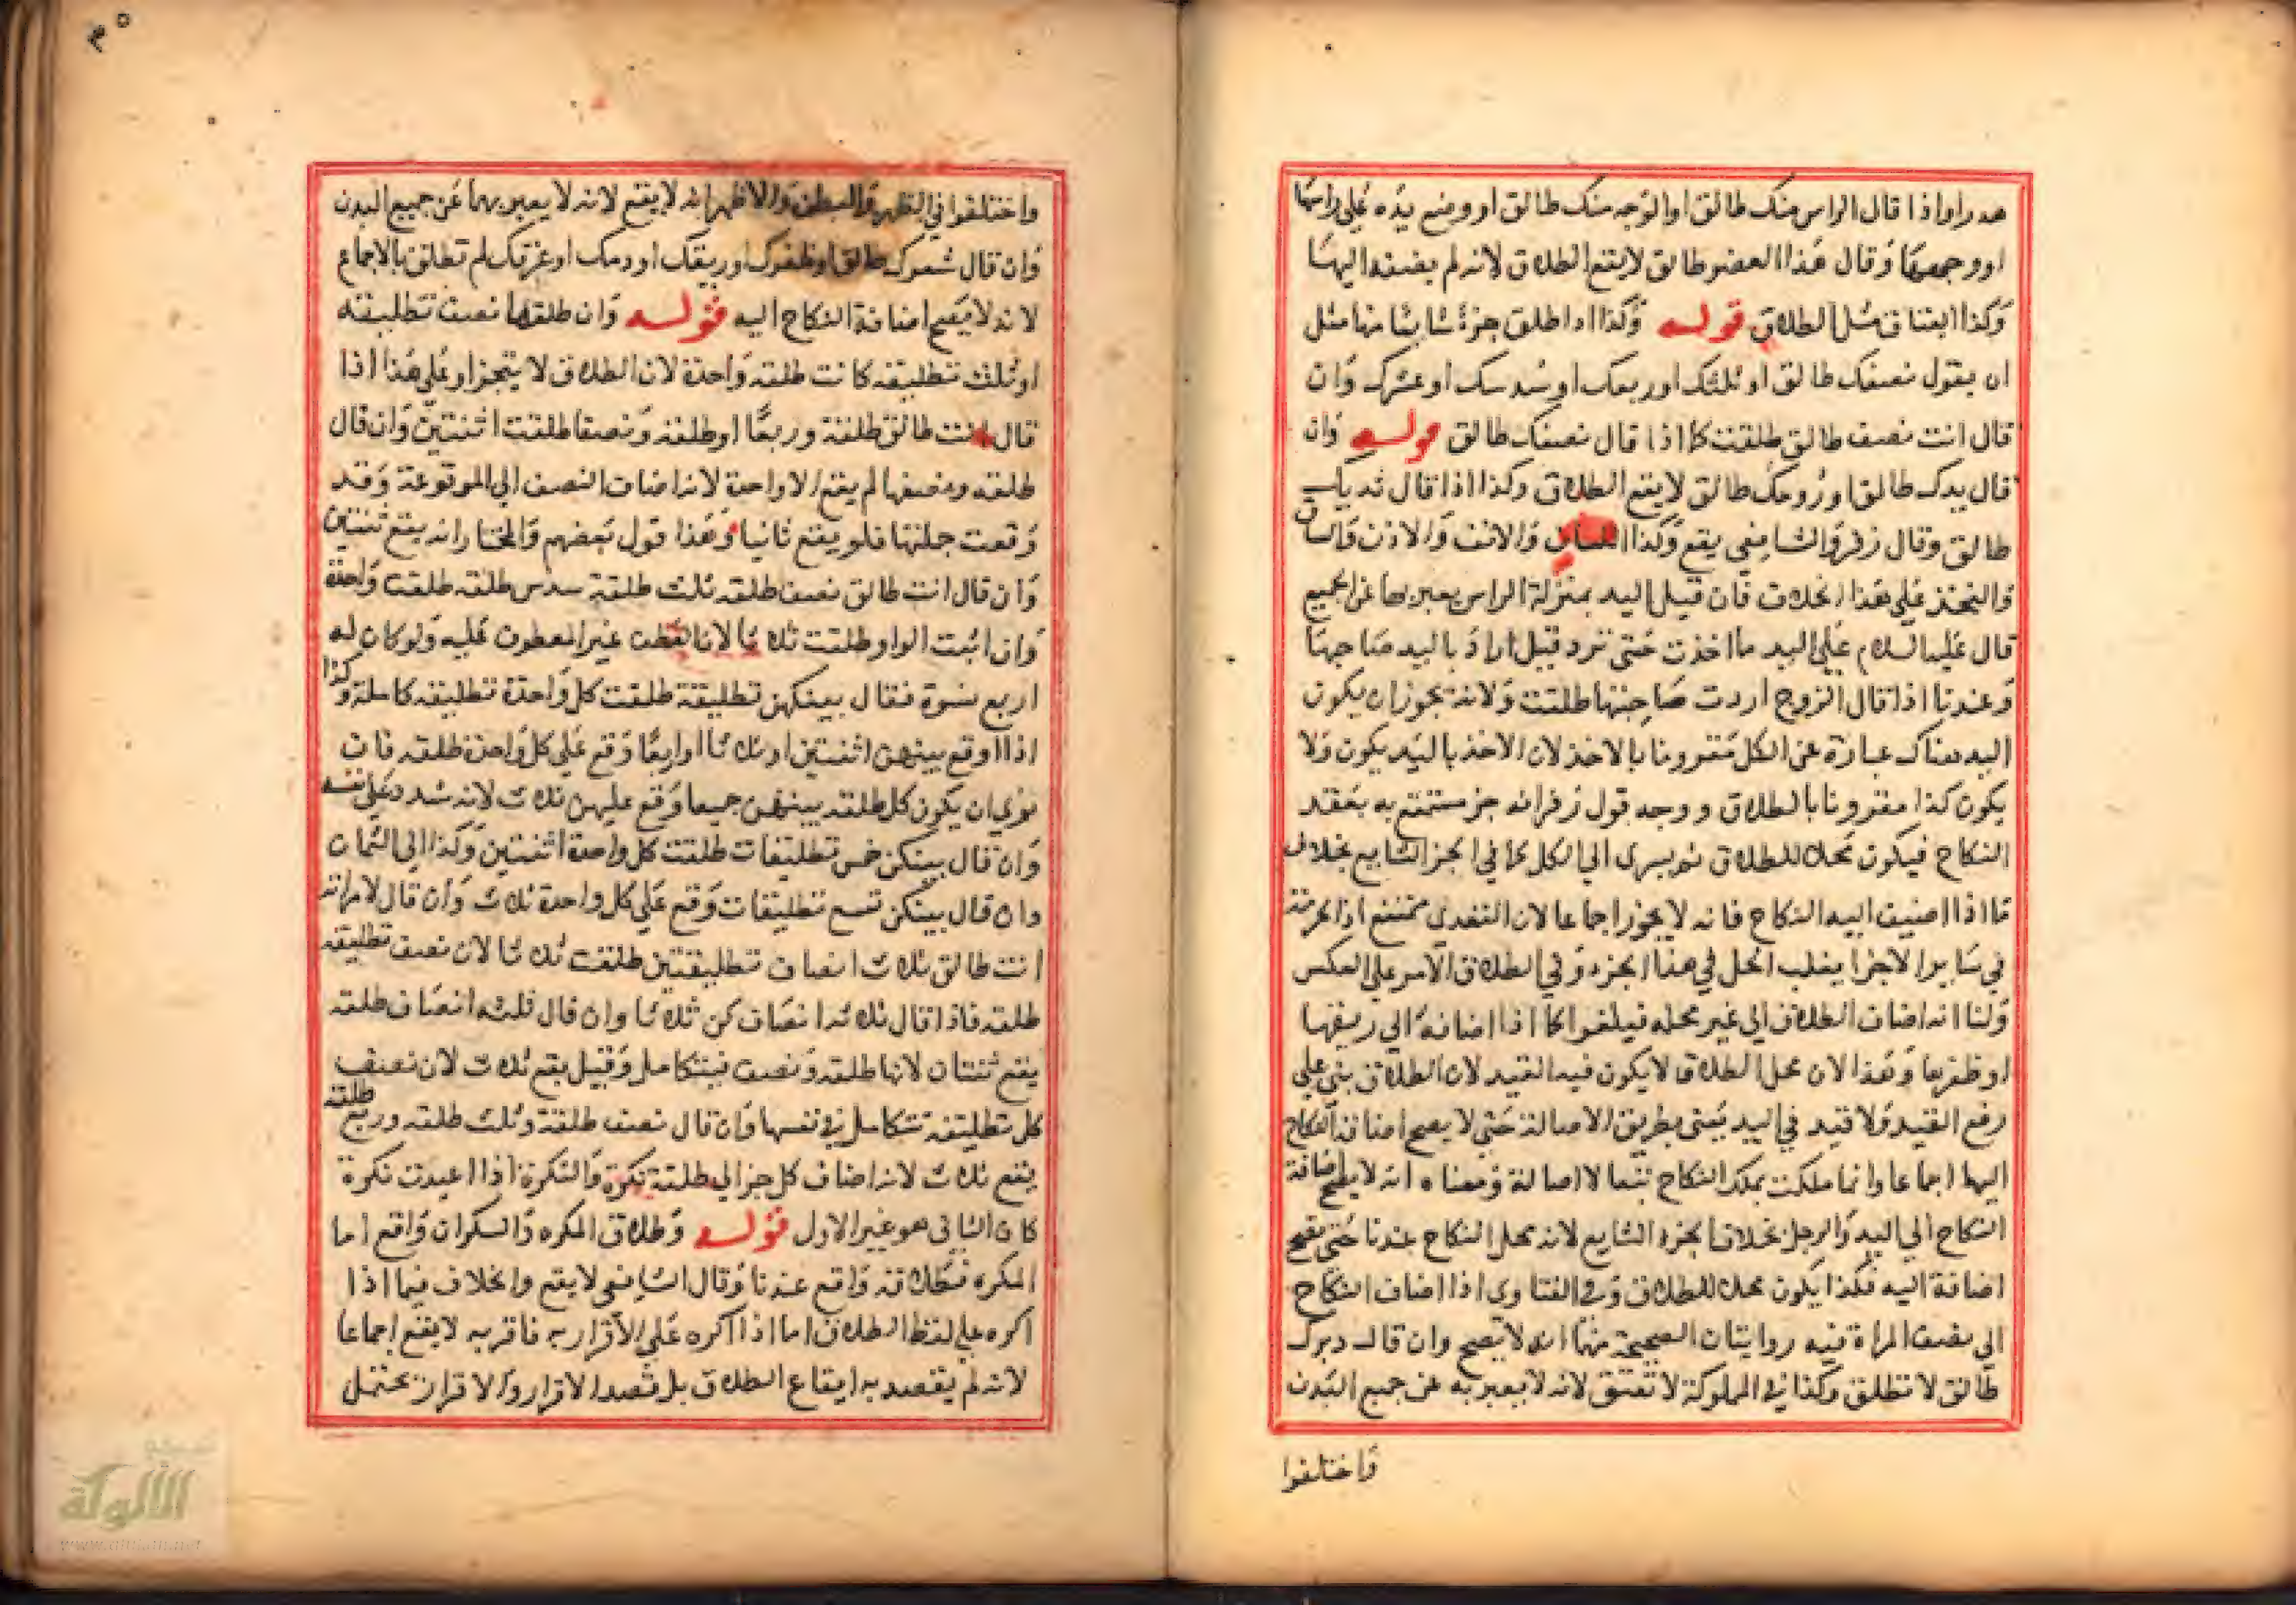 هدرا واذا قال الراس منك طالق او الوجه منك طالق او وضع يده على راسها
او وجهها وقال هذا العضو طالق لا يقع الطلاق لانه لم يضفه اليها
وكذا العتاق مثل الطلاق قوله وكذا اذا طلق جزءا شائعا منها مثل
ان يقول نصفك طالق او ثلثك او ربعك او سدسك او عشرك وان
قال انت نصف طالق طلقت كما اذا قال نصفك طالق قوله وان
قال يدك طالق او روحك طالق لا يقع الطلاق وكذا اذا قال ثدياك
طالق وقال زفر والشافعي يقع وكذا اللسان والانف والاذن والساق
والفخذ على هذا الخلاف فان قيل اليد بمنزلة الراس يعبر بها عن الجميع
قال عليه السلام على اليد ما اخذت حتى ترد قيل اراد باليد صاحبها
وعندنا اذا قال الزوج اردت صاحبتها طلقت ولانه يجوز ان يكون
اليد هناك عبارة عن الكل مقرونا بالاخذ لان الاخذ باليد يكون ولا
يكون كذا مقرونا بالطلاق ووجه قول زفر انه جز مستمتع به بعقد
النكاح فيكون محلا للطلاق ثم يسرى الى الكل كما في الجز الشايع بخلاف
ما اذا اضيف اليه النكاح فانه لا يجوز اجماعا لان التعدي ممتنع اذ الحرمة
في ساير الاجزا يغلب الحل في هذا الجزء وفي الطلاق الامر على العكس
ولنا انه اضاف الطلاق الى غير محله فيلغوا كما اذا اضافه الى ريقها
او ظفرها وهذا لان محل الطلاق ما يكون فيه القيد لان الطلاق يبنى على
رفع القيد ولا قيد في اليد يعني بطريق الاصالة حتى لا يصح اضافة النكاح
اليها اجماعا وانما ملكت بملك النكاح تبعا لا اصالة ومعناه انه لا يصح اضافة
النكاح الى اليد والرجل بخلاف الجزء الشايع لانه محل النكاح عندنا حتى يصح
اضافة اليه فكذا يكون محلا للطلاق وفي الفتاوى اذا اضاف النكاح
الى نصف المراة فيه روايتان الصحيحة منها انه لا يصح وان قال دبرك
طالق لا تطلق وكذا في المملوكة لا تعتق لانه لا يعبر به عن جميع البدن
واختلفوا
واختلفوا في الظهر والبطن والاظهر انه لا يقع لانه لا يعبر بهما عن جميع البدن
وان قال شعرك طالق او ظفرك او ريقك او دمك او عرقك لم تطلق بالاجماع
لانه لا يصح اضافة النكاح اليه قوله وان طلقها نصف تطليقه
او ثلث تطليقه كانت طلقه واحدة لان الطلاق لا يتجزا وعلى هذا اذا
قال انت طالق طلقة وربعا او طلقة ونصفا طلقت اثنتين وان قال
طلقه ونصفها لم يقع الا واحدة لانه اضاف النصف الى الموقوعة وقد
وقعت جملتها فلو يقع ثانيا وهذا قول بعضهم والمختار انه يقع ثنتين
وان قال انت طالق نصف طلقه ثلث طلقة سدس طلقه طلقت واحدة
وان اثبت الواو طلقت ثلاثا لان العطف غير المعطوف عليه ولو كان له
اربع نسوة فقال بينكن تطليقة طلقت كل واحدة تطليقه كاملة وكذا
اذا اوقع بينهن اثنتين او ثلاثا او اربعا وقع على كل واحدة طلقه فان
نوى ان يكون كل طلقه بينهن جميعا وقع عليهن ثلاث لانه شدد على نفسه
وان قال بينكن خمس تطليقات طلقت كل واحدة اثنتين وكذا الى الثمان
وان قال بينكن تسع تطليقات وقع على كل واحدة ثلاث وان قال لامراته
انت طالق ثلاث انصاف تطليقتين طلقت ثلاثا لان نصف تطليقه
طلقه فاذا قال ثلاثه انصاف كن ثلاثا وان قال ثلثه انصاف طلقه
يقع ثنتان لانها طلقه ونصف فيتكامل وقيل يقع ثلاث لان نصف
كل تطليقة تتكامل في نفسها وان قال نصف طلقة وثلث طلقه وربع طلقه
يقع ثلاث لانه اضاف كل جز الى طلقة نكرة والنكرة اذا اعيدت نكرة
كان الثاني هو غير الاول قوله وطلاق المكره والسكران واقع اما
المكره فطلاقه واقع عندنا وقال الشافعي لا يقع والخلاف فيما اذا
اكره على لفظ الطلاق اما اذا اكره على الاقرار به فاقر به لا يقع اجماعا
لانه لم يقصد به ايقاع الطلاق بل قصد الاقرار والاقرار يحتمل
الألوكة
www.alukah.net